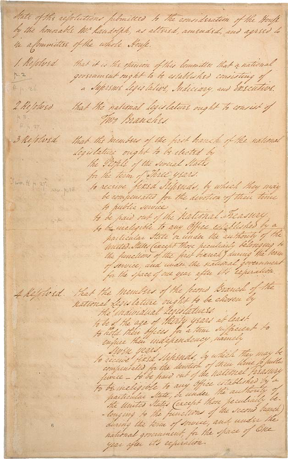 State of the resolutions submitted to the consideration of the House
by the honorable Mr. Randolph, as altered, amended, and agreed to
in a Committee of the whole House.
1 Resolved that it is the opinion of this Committee that a national
government ought to be established consisting of
a Supreme Legislative, Judiciary, and Executive.
2 Resolved that the national Legislature ought to consist of
Two Branches.
3 Resolved that the members of the first branch of the national
Legislature ought to be elected by
the People of the several States
for the term of Three years.
to receive fixed stipends, by which they may
be compensated for the devotion of their time
to public service
to be paid out of the National Treasury.
to be ineligible to any Office established by a
particular State or under the authority of the
United States (except those peculiarly belonging to
the functions of the first branch) during the term
of service, and under the national government
for the space of one year after its expiration.
4 Resolved that the members of the second Branch of the
national Legislature ought to be chosen by
the individual Legislatures.
to be of the age of thirty years at least.
to hold their offices for a term sufficient to
ensure their independency, namely
seven years.
to receive fixed stipends, by which they may be
compensated for the devotion of their time to public
service to be paid out of the National Treasury
to be ineligible to any Office established by a
particular State, or under the authority of
the United States (except those peculiarly be
longing to the functions of the second branch)
during the term of service, and under the
national government, for the space of One
year after its expiration.